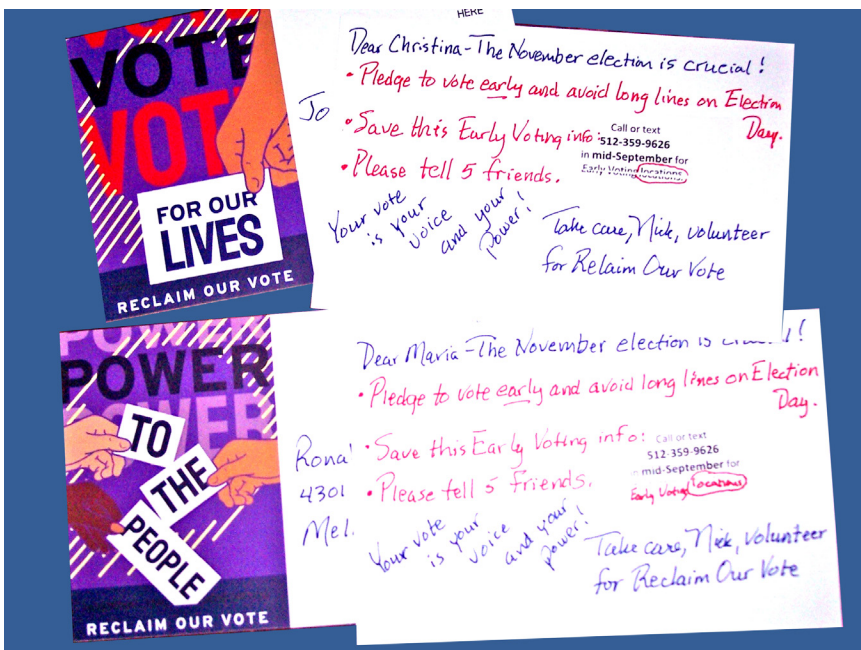 VOTE
VOTE
VOT
FOR OUR
LIVES
RECLAIM OUR VOTE
HERE
Jo
Dear Christina-The November election is crucial!
• Pledge to vote early and avoid long lines on Election
Day.
• Save this Early Voting info:
Call or text
512-359-9626
in mid-September for
Early Voting locations.
• Please tell 5 friends.
Your vote
is your
voice
and your
power!
Take care, Nick, volunteer
for Reclaim Our Vote
POWER
POWER
POWER
TO
THE
PEOPLE
RECLAIM OUR VOTE
Rona
4301
Mel.
Dear Maria-The November election is
• Pledge to vote early and avoid long lines on Election
Day.
• Save this Early Voting info:
Call or text
512-359-9626
in mid-September for
Early Voting locations
• Please tell 5 friends.
Your vote
is your
voice
and your
power!
Take care, Nick, volunteer
for Reclaim Our Vote